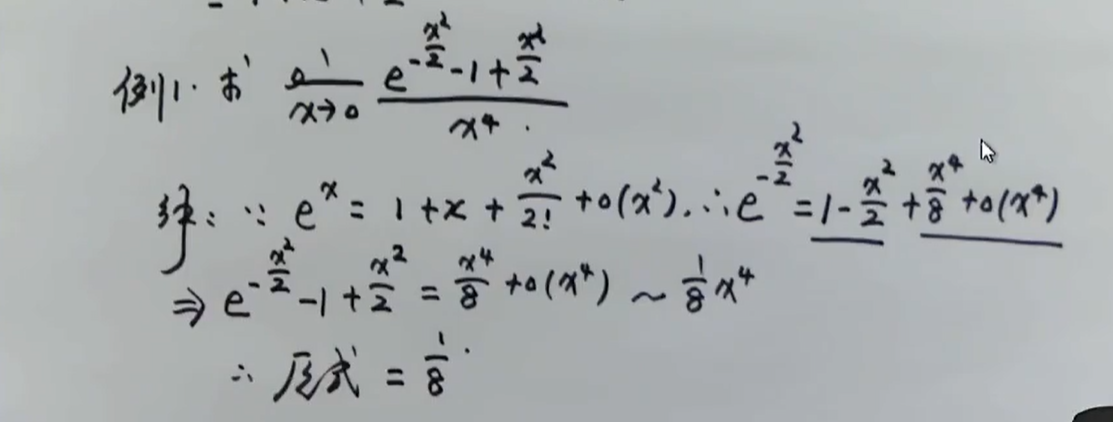 例1. 求 lim_{x→0} \frac{e^{-\frac{x^2}{2}}-1+\frac{x^2}{2}}{x^4}.
解: ∵ e^x = 1+x+\frac{x^2}{2!}+o(x^2). ∴ e^{-\frac{x^2}{2}} = 1-\frac{x^2}{2}+\frac{x^4}{8}+o(x^4)
⇒ e^{-\frac{x^2}{2}}-1+\frac{x^2}{2} = \frac{x^4}{8}+o(x^4) ~ \frac{1}{8}x^4
∴ 原式 = \frac{1}{8}.